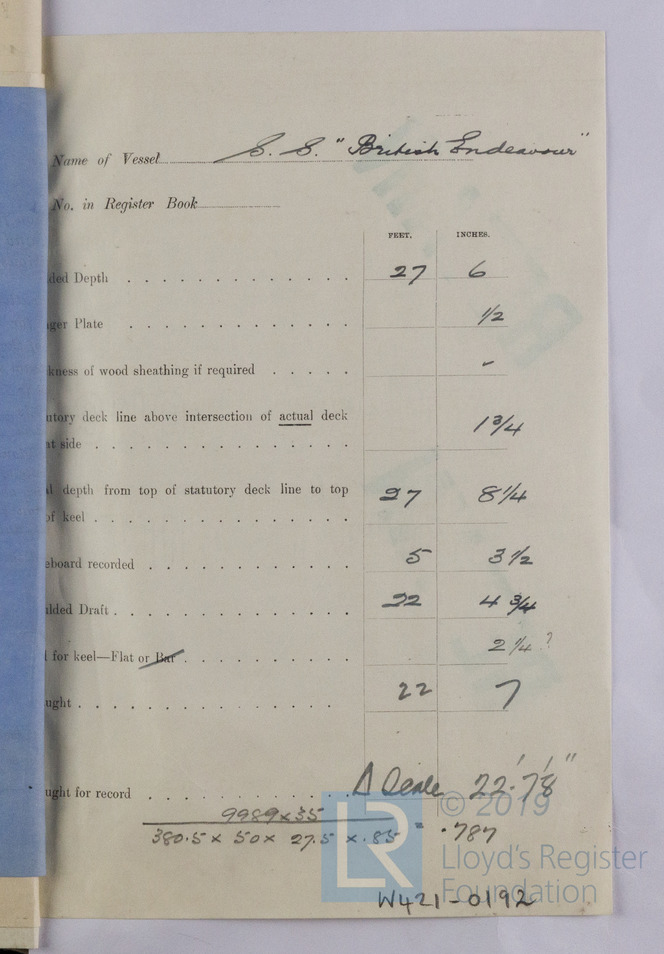 Name of Vessel S. S. "British Endeavour"
No. in Register Book
FEET. INCHES.
ded Depth 27 6
ger Plate 1/2
kness of wood sheathing if required -
utory deck line above intersection of actual deck
at side 1 3/4
l depth from top of statutory deck line to top
of keel 27 8 1/4
eboard recorded 5 3 1/2
lded Draft 22 4 3/4
l for keel—Flat or Bar 2 1/4 ?
ught 22 7
ught for record
9989 x 35
380.5 x 50 x 27.5 x .85 = .787
© 2019
LR
Lloyd's Register
Foundation
W421-0192